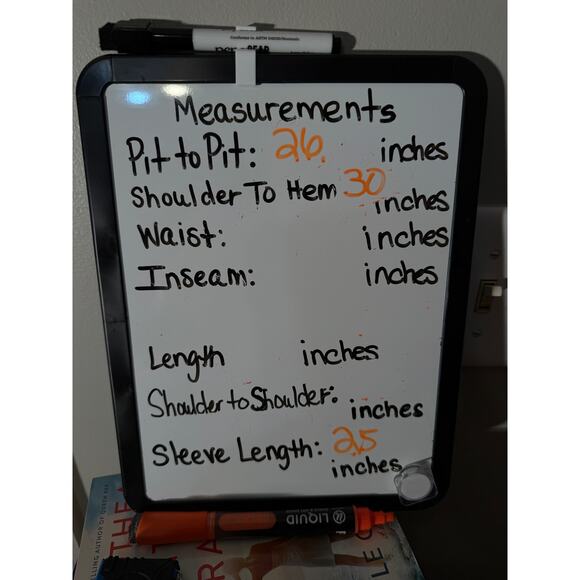 Measurements
Pit to Pit: 26 inches
Shoulder To Hem 30 inches
Waist: inches
Inseam: inches
Length inches
Shoulder to Shoulder: inches
Sleeve Length: 25 inches
LIQUID